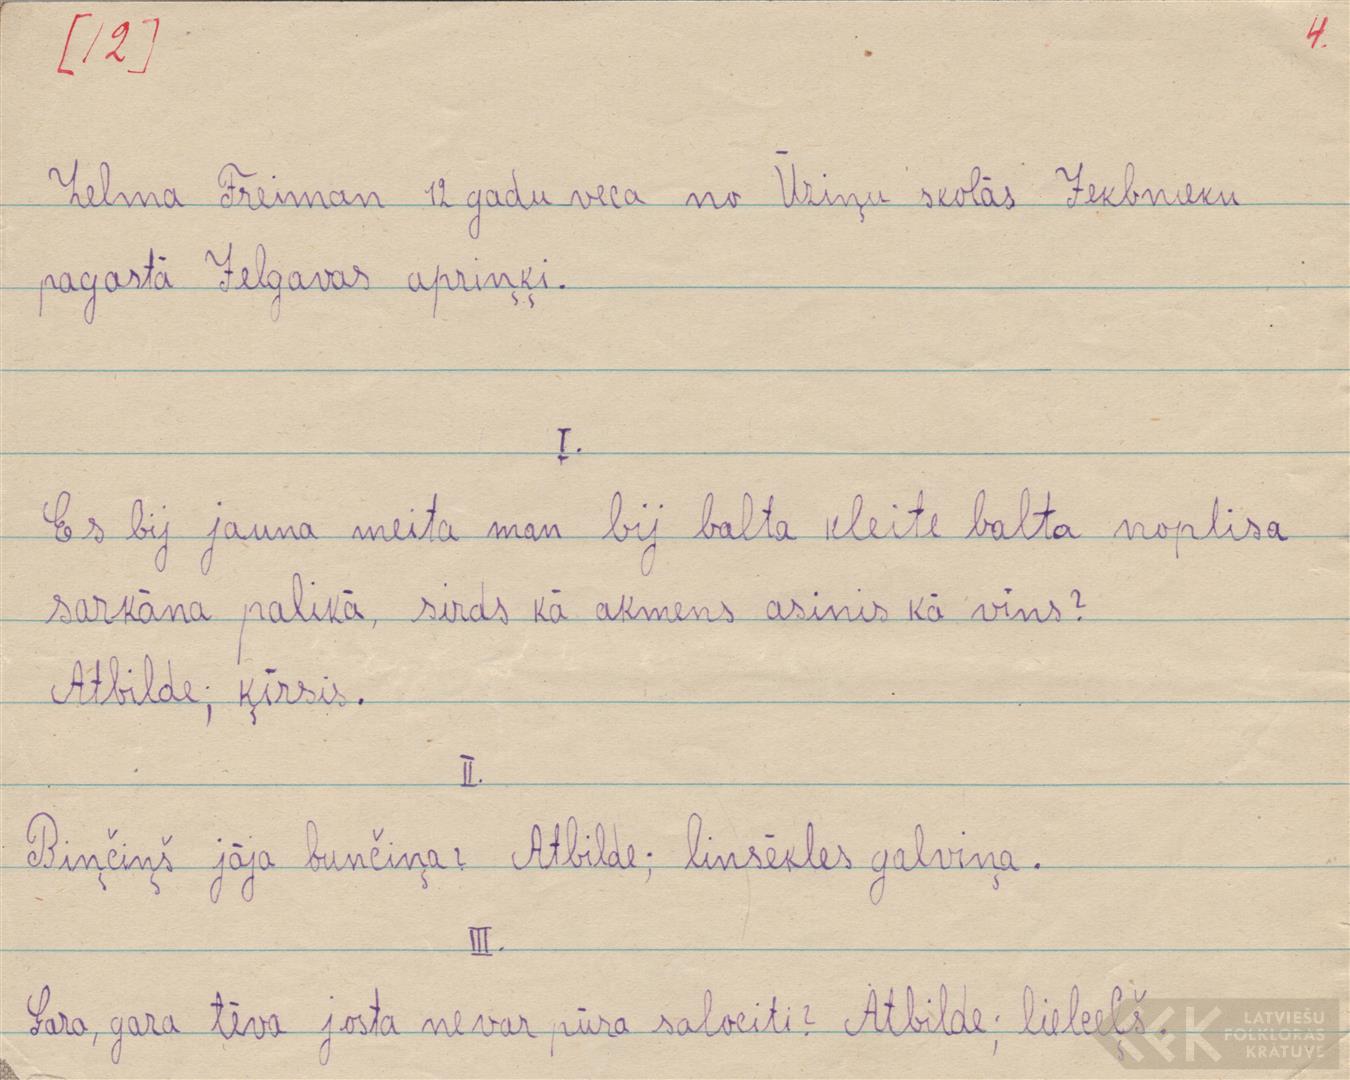 [12]
4.
Zelma Freiman 12 gadu veca no Ūziņu skolās Jekbnieku
pagastā Jelgavas apriņķi.
I.
Es bij jauna meita man bij balta kleite balta noplisa
sarkāna palikā, sirds kā akmens asinis kā vīns?
Atbilde; ķīrsis.
II.
Biņčiņš jāja bunčiņa? Atbilde; linsēkles galviņa.
III.
Gara, gara tēva josta nevar pūra salociti? Atbilde; lielceļš.
LATVIEŠU
FOLKLORAS
KRĀTUVE